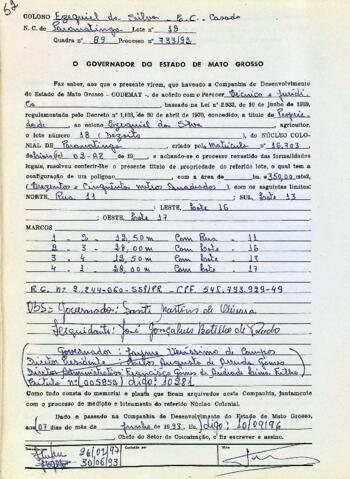 52
COLONO Ezequiel da Silva - E.C. Casado
N. C. de Paranatinga Lote nº 18
Quadra nº 89 Processo nº 733/93
O GOVERNADOR DO ESTADO DE MATO GROSSO
Faz saber, aos que o presente virem, que havendo a Companhia de Desenvolvimento
do Estado de Mato Grosso - CODEMAT -, de acordo com o Parecer Técnico e Jurídi-
co, baseada na Lei nº 2.933, de 10 de junho de 1969,
regulamentada pelo Decreto nº 1.138, de 30 de abril de 1970, concedido, a título de Proprie-
dade ao Ezequiel da Silva, agricultor,
o lote número 18 (Dezoito), do NÚCLEO COLO-
NIAL DE Paranatinga criado pela Matrícula nº 16.703
de 02-AZ de 19, e achando-se o processo revestido das formalidades
legais, resolveu conferir-lhe o presente título de propriedade do referido lote, o qual tem a
configuração de um polígono, com a área de ha. 350,00 mts2,
(Trezentos e Cinquenta metros Quadrados) e com os seguintes limites:
NORTE, Rua 11; SUL, Lote 13
; LESTE, Lote 16
; OESTE, Lote 17
MARCOS
1 - 2 - 12,50m Com Rua - 11
2 - 3 - 28,00m Com Lote - 16
3 - 4 - 12,50m Com Lote - 13
4 - 1 - 28,00m Com Lote - 17
R.G. nº 2.244-060-SSP/PR - CPF. 545.793.929-49
OBS: Governador: Santi Martins de Oliveira
Liquidante: José Gonçalves Botelho de Prado
Governador: Jayme Veríssimo de Campos
Diretor Presidente - Carlos Augusto de Arruda Gomes
Diretor Administrativo: Francisco Gomes de Andrade Lima Filho
(Título nº (005952) digo: 10281
Como tudo consta do memorial e planta que ficam arquivados nesta Companhia, juntamente
com o processo de medição e loteamento do referido Núcleo Colonial.
Dado e passado na Companhia de Desenvolvimento do Estado de Mato Grosso,
aos 07 dias do mês de junho de 1993. Eu, digo: 10/09/96
Chefe do Setor de Colonização, o fiz escrever e assino.
26/02/97
30/06/93
Conferido por
Visto